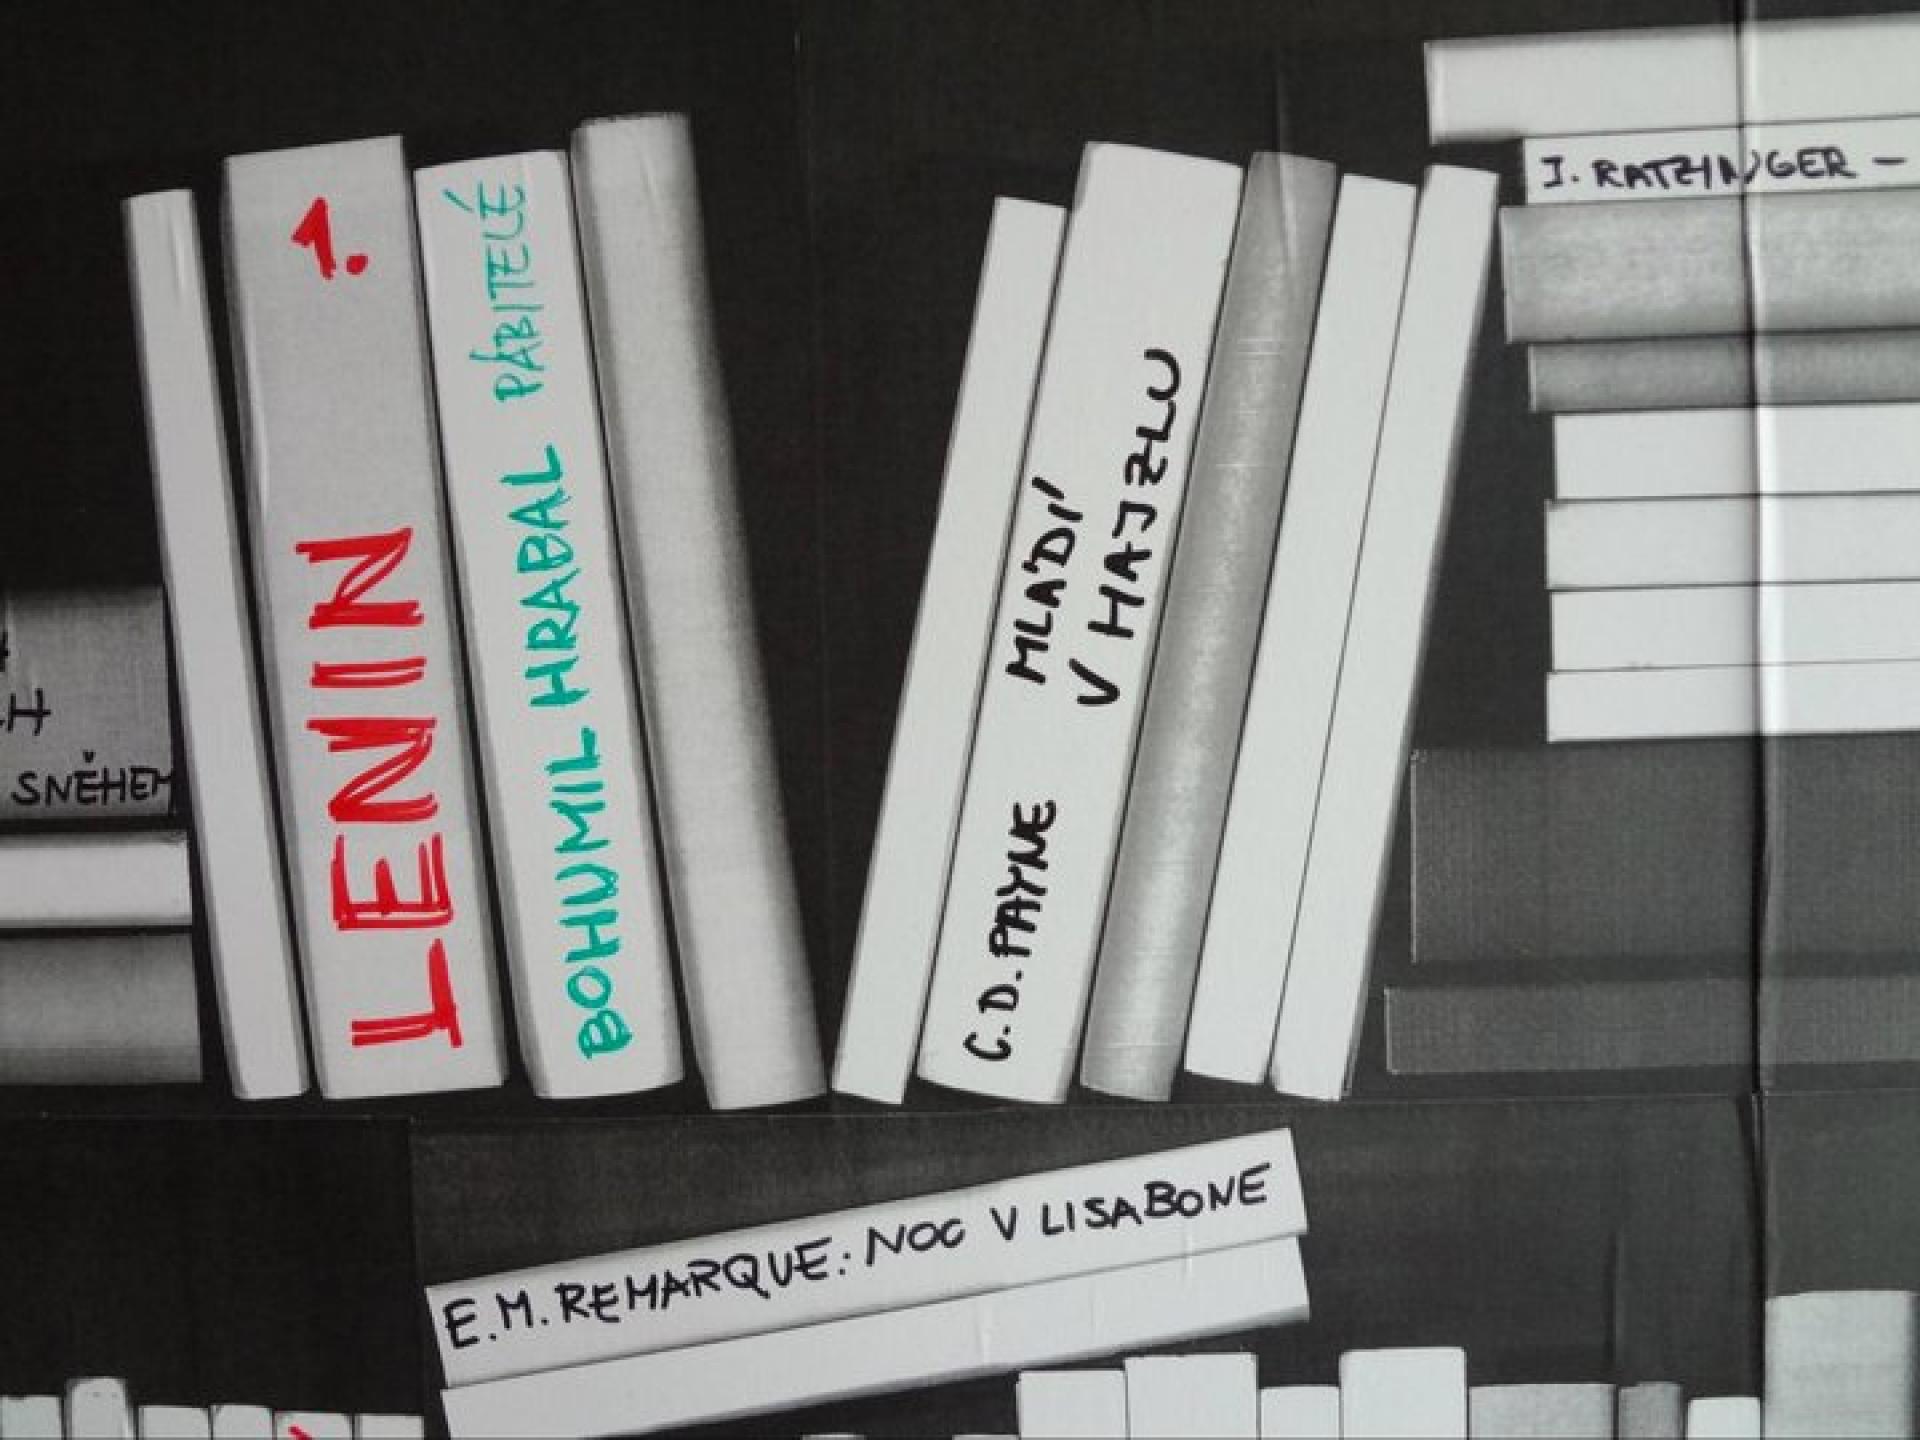 H
SNĚHEM
LENIN 1.
BOHUMIL HRABAL PÁBITELÉ
C.D. PAYNE MLADÍ
V HAJZLU
J. RATZINGER –
E.M. REMARQUE: NOC V LISABONE